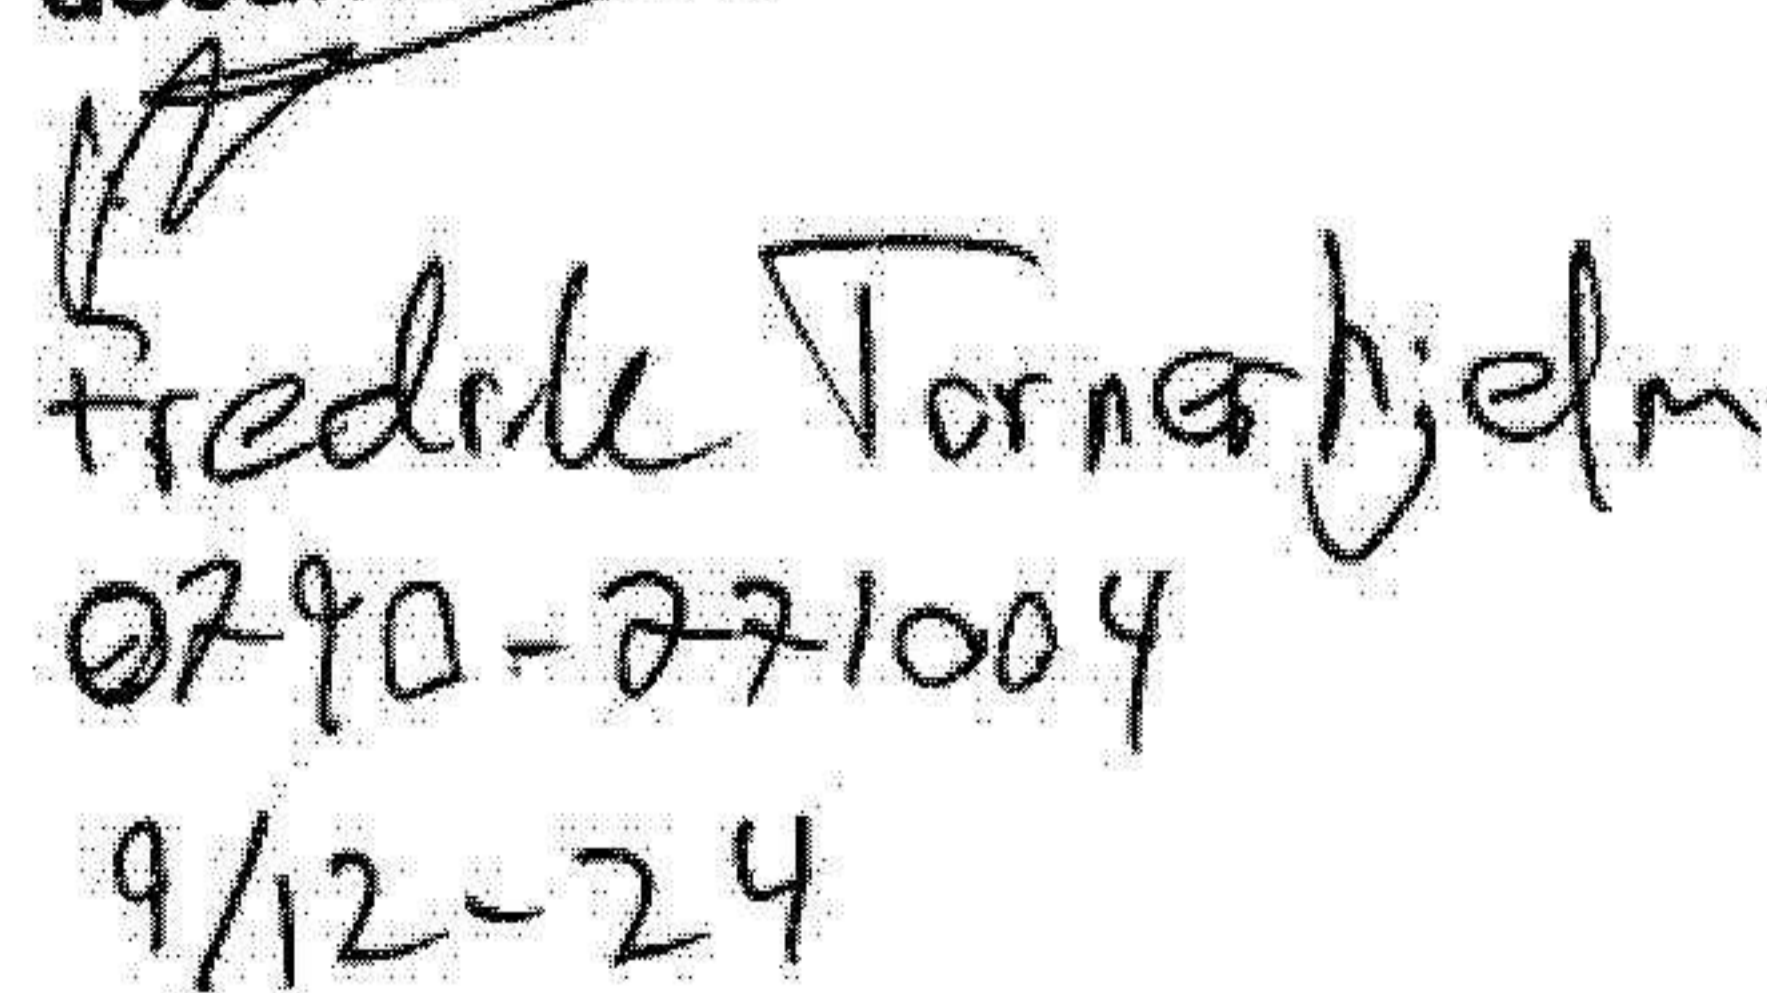 Fredrik Tornerhjelm
0790-2771004
9/12-24